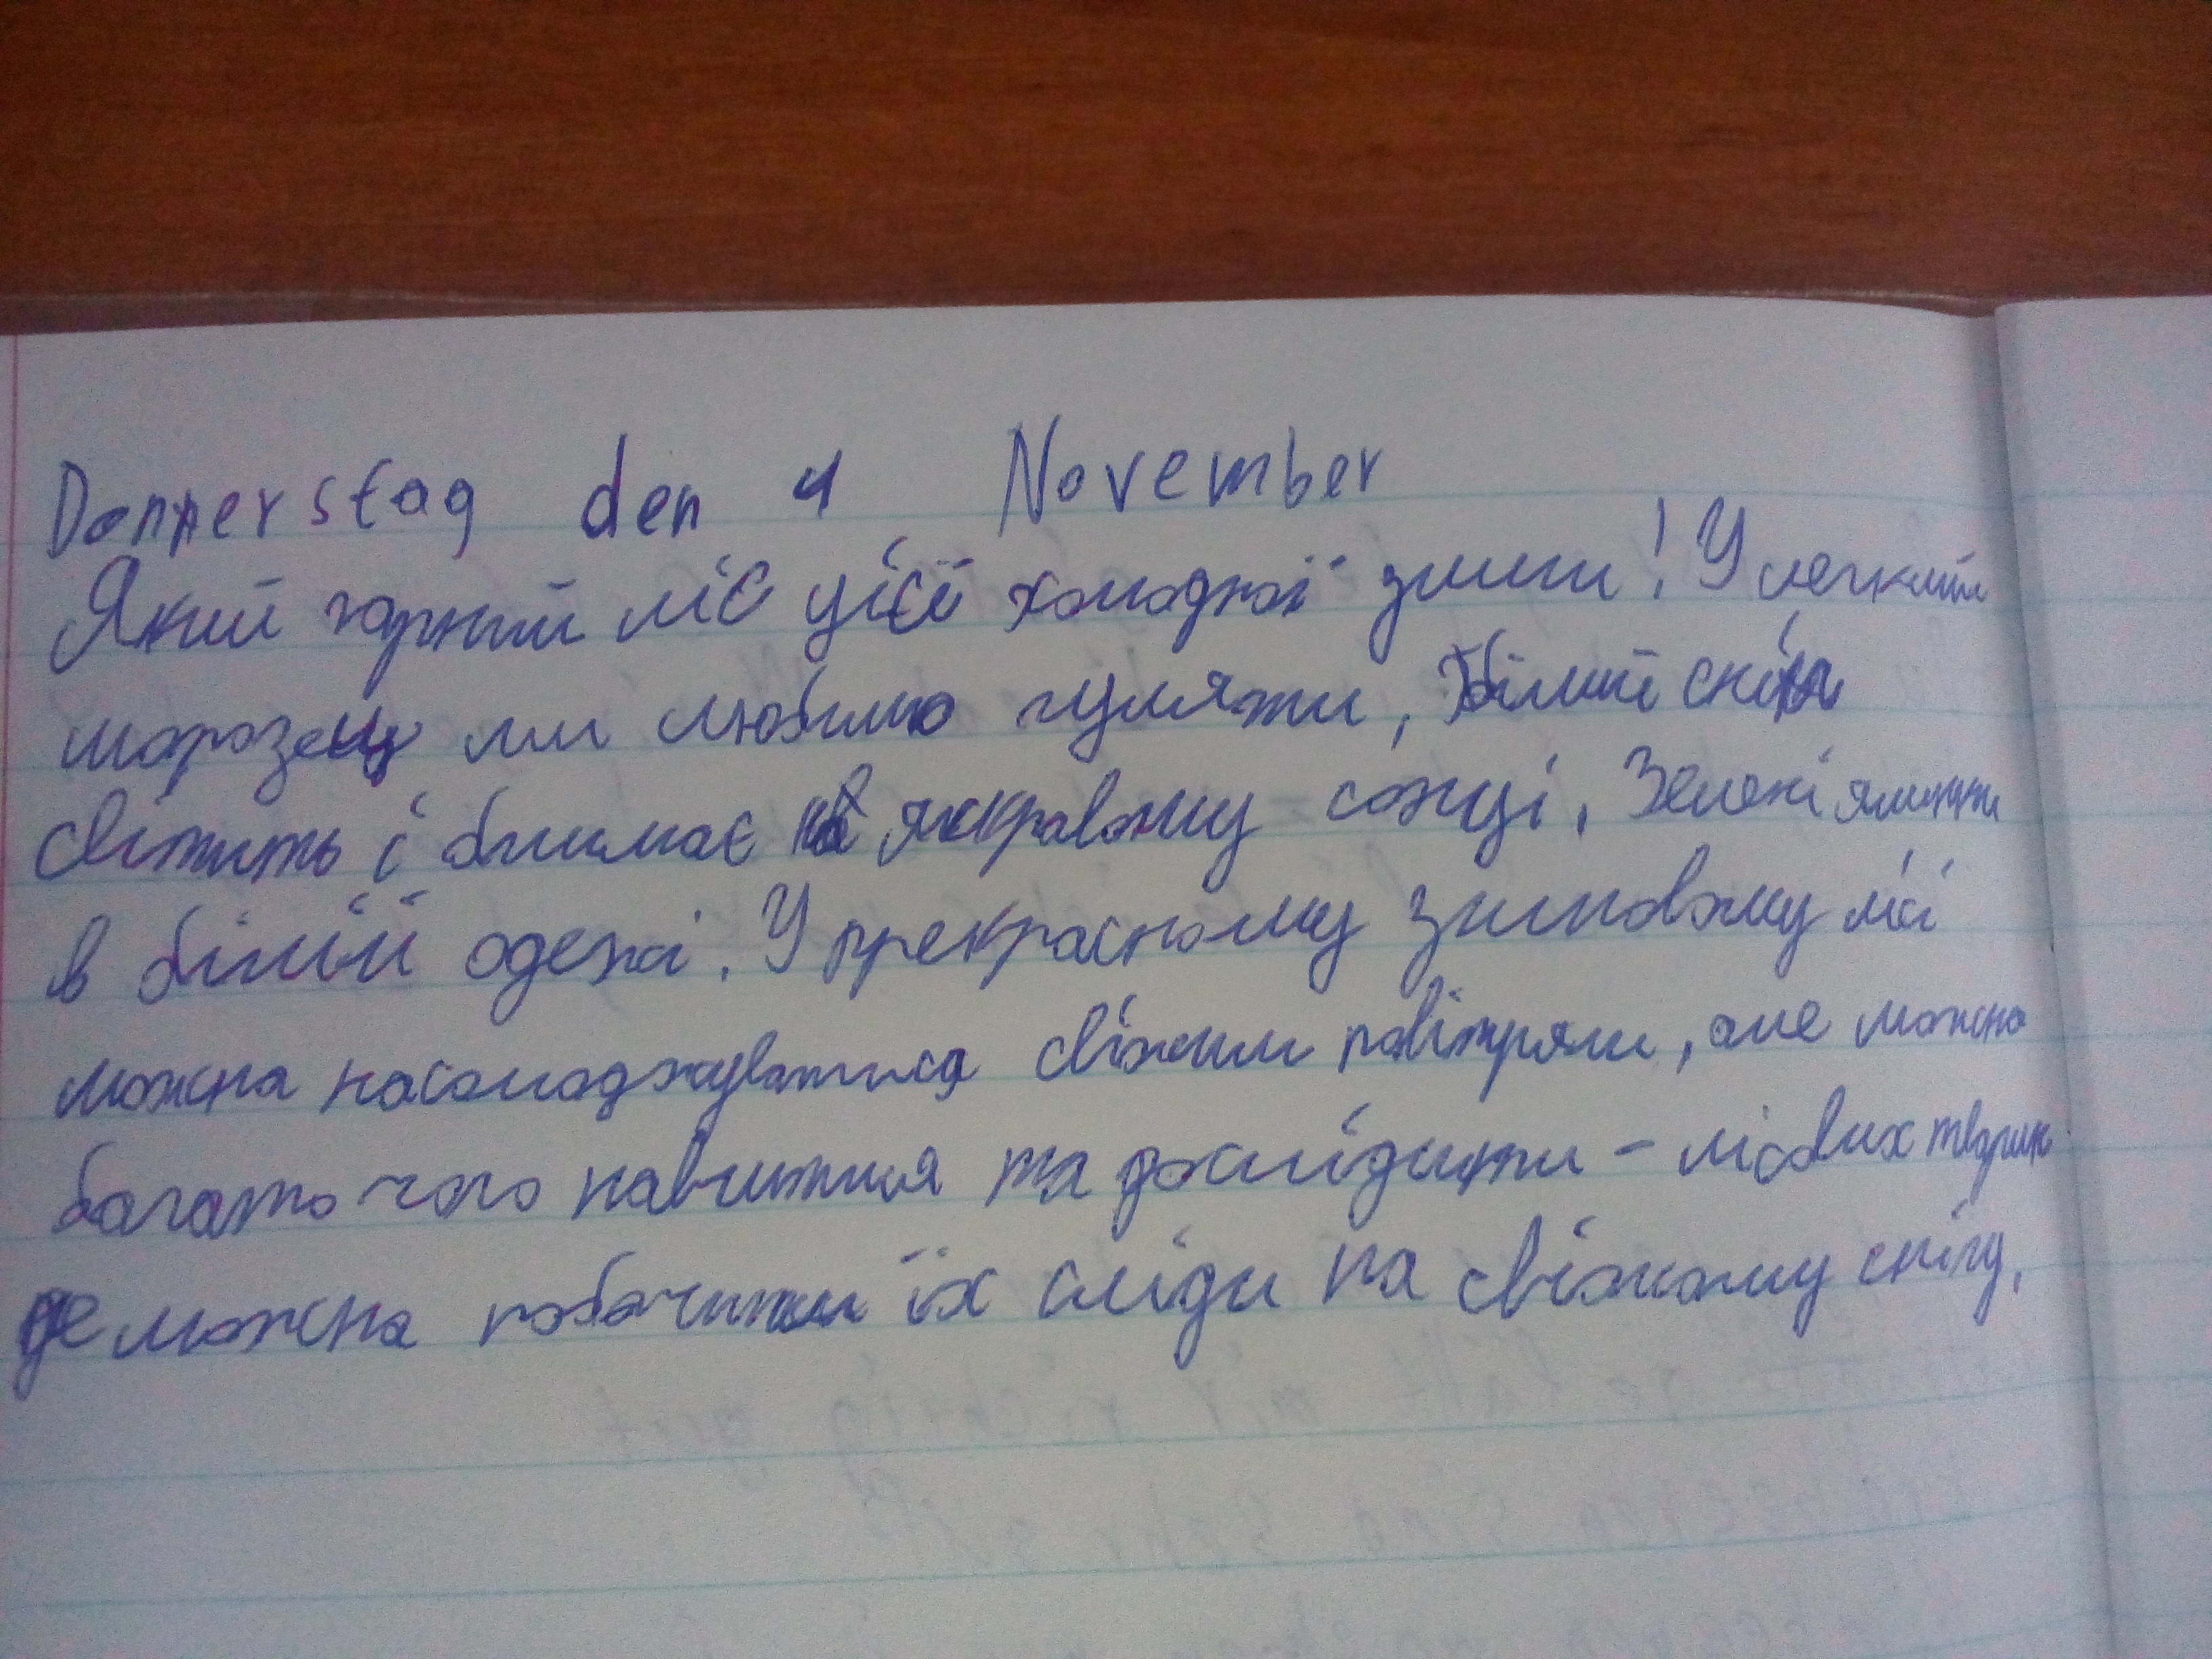 Donnerstag den 4 November
Який гарний ліс цієї холодної зими! У легкий
морозець ми любимо гуляти, Білий сніг
світить і блимає в яскравому сонці. Зелені ялинки
в білій одежі. У прекрасному зимовому лісі
можна насолоджуватися свіжим повітрям, але можна
багато чого навчитися та дослідити - лісових тварин
де можна побачити їх сліди на свіжому снігу.